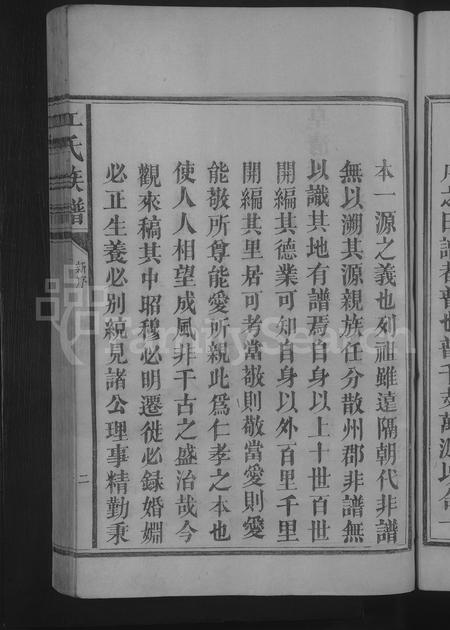 本一源之義也列祖雖遠隔朝代非譜
無以溯其源親族任分散州郡非譜無
以識其地有譜焉自身以上十世百世
開編其德業可知自身以外百里千里
開編其里居可考當敬則敬當愛則愛
能敬所尊能愛所親此爲仁孝之本也
使人人相望成風非千古之盛治哉今
觀來稿其中昭穆必明遷徙必録婚嫺
必正生養必別統見諸公理事精勤秉
氏族譜
二
FamilySearch